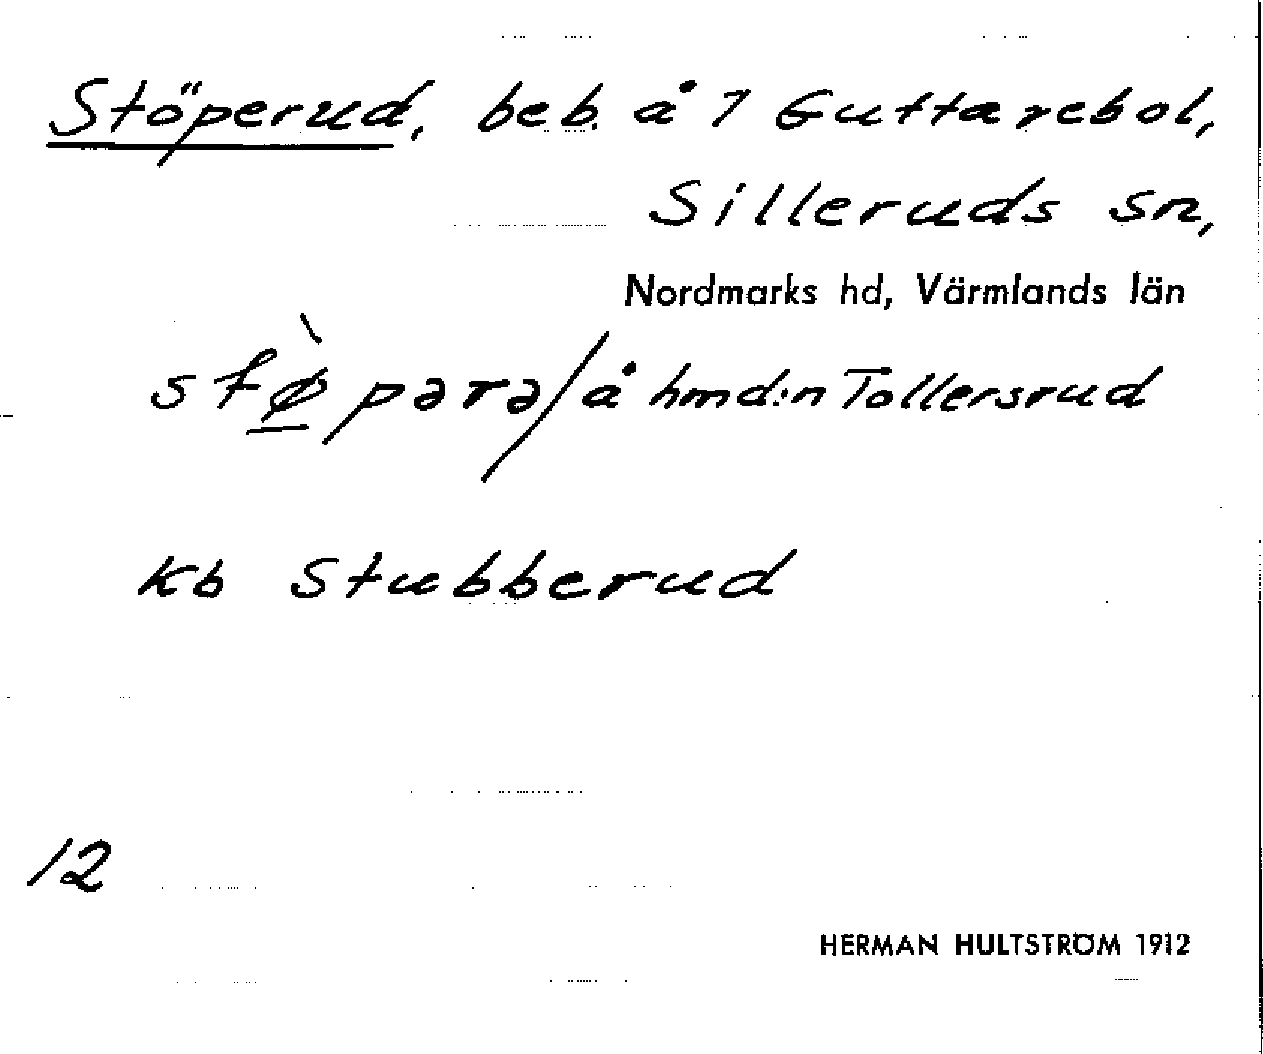 Stöperud, beb. å 1 Guttarebol,
Silleruds sn,
Nordmarks hd, Värmlands län
stø̀pərə/å hmd:n Tollersrud
kb Stubberud
12
HERMAN HULTSTRÖM 1912